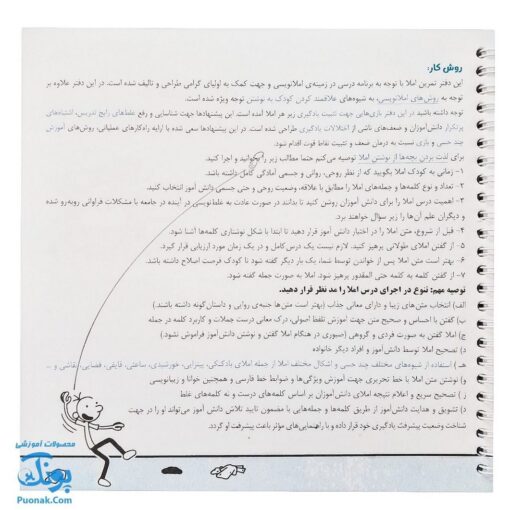 روش کار:
این دفتر تمرین املا با توجه به برنامه درسی در زمینه‌ی املانویسی و جهت کمک به اولیای گرامی طراحی و تالیف شده است. در این دفتر علاوه بر
توجه به روش‌های املانویسی، به شیوه‌های علاقمند کردن کودک به نوشتن توجه ویژه شده است.
توجه داشته باشید در این دفتر بازی‌هایی جهت تثبیت یادگیری زیر هر املا آمده است. این پیشنهادها جهت شناسایی و رفع غلط‌های رایج تدریس، اشتباه‌های
پرتکرار دانش‌آموزان و ضعف‌های ناشی از اختلالات یادگیری طراحی شده است. در این پیشنهادها سعی شده با ارایه راه‌کارهای عملیاتی، روش‌های آموزش
چند حسی و بازی نسبت به درمان ضعف و تثبیت نقاط قوت اقدام شود.
برای لذت بردن بچه‌ها از نوشتن املا توصیه می‌کنم حتما مطالب زیر را بخوانید و اجرا کنید.
۱- زمانی به کودک املا بگویید که از نظر روحی، روانی و جسمی آمادگی کامل داشته باشد.
۲- تعداد و نوع کلمه‌ها و جمله‌های املا را مطابق با علاقه، وضعیت روحی و حتی جسمی دانش‌آموز انتخاب کنید.
۳- اهمیت درس املا را برای دانش آموزان روشن کنید تا بدانند در صورت عادت به غلط‌نویسی در آینده در جامعه با مشکلات فراوانی روبه‌رو شده
و دیگران علم آن‌ها را زیر سؤال خواهند برد.
۴- قبل از شروع، متن املا را در اختیار دانش آموز قرار دهید تا ابتدا با شکل نوشتاری کلمه‌ها آشنا شود.
۵- از گفتن املای طولانی پرهیز کنید. لازم نیست یک درس کامل و در یک زمان مورد ارزیابی قرار گیرد.
۶- بهتر است متن املا پس از خواندن توسط شما، یک بار دیگر گفته شود تا کودک فرصت اصلاح داشته باشد.
۷- از گفتن کلمه به کلمه حتی المقدور پرهیز شود. املا به صورت جمله گفته شود.
توصیه مهم: تنوع در اجرای درس املا را مد نظر قرار دهید.
الف) انتخاب متن‌های زیبا و دارای معانی جذاب (بهتر است متن‌ها جنبه‌ی روایی و داستان‌گونه داشته باشند.)
ب) گفتن با احساس و صحیح متن جهت آموزش تلفظ اصولی، درک معانی درست جملات و کاربرد کلمه در جمله
ج) املا گفتن به صورت فردی و گروهی (صبوری در هنگام املا گفتن و نوشتن دانش‌آموز فراموش نشود.)
د) تصحیح املا توسط دانش‌آموز و افراد دیگر خانواده
هـ) استفاده از شیوه‌های مختلف چند حسی و اشکال مختلف املا از جمله املای بادکنکی، پیتزایی، خورشیدی، ساعتی، قایقی، فضایی، نقاشی و ...
و) نوشتن متن املا با خط تحریری جهت آموزش ویژگی‌ها و ضوابط خط فارسی و همچنین خوانا و زیبانویسی
ز ) تصحیح سریع و اعلام نتیجه املای دانش‌آموزان بر اساس کلمه‌های درست و نه کلمه‌های غلط
د) تشویق و هدایت دانش‌آموز از طریق کلمه‌ها و جمله‌هایی با مضمون تایید تلاش دانش آموز می‌تواند او را در جهت
شناخت وضعیت پیشرفت یادگیری خود قرار داده و با راهنمایی‌های مؤثر باعث پیشرفت او گردد.
محصولات آموزشی
پونک
Puonak.Com